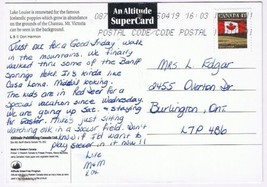 Lake Louise is renowned for the famous
Icelandic poppies which grow in abundance
on the grounds of the Chateau. Mt. Victoria
can be seen in the background.
An Altitude
SuperCard
16:03
POSTAL CODE/CODE POSTAL
CANADA
Just out for a Good Friday walk
in the mountains. We finally
walked thru some of the Banff
Springs hotel. It's kinda like
Casa Loma. Middle looking.
The kids are in Red Deer for a
special vacation since Wednesday.
We are going up Sat. & staying
for Easter. Mike's just sitting
watching elk in a soccer field. Don't
know if I'd want to
play soccer in it now!!
Love
M & M
Mrs. L Edgar
2455 Overton Dr.
Burlington, Ont.
L7P 4B6
Altitude Publishing Canada Ltd.